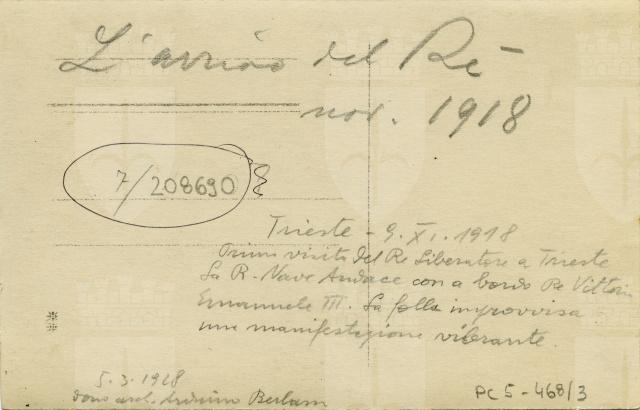 L'arrivo del Rè
nov. 1918
7/208690
Trieste - 9. XI. 1918
Prima visita del Re Liberatore a Trieste
La R. Nave Audace con a bordo Re Vittorio
Emanuele III. La folla improvvisa
una manifestazione vibrante.
5.3.1928
dono arch. Arduino Berlam
PC 5 - 468/3